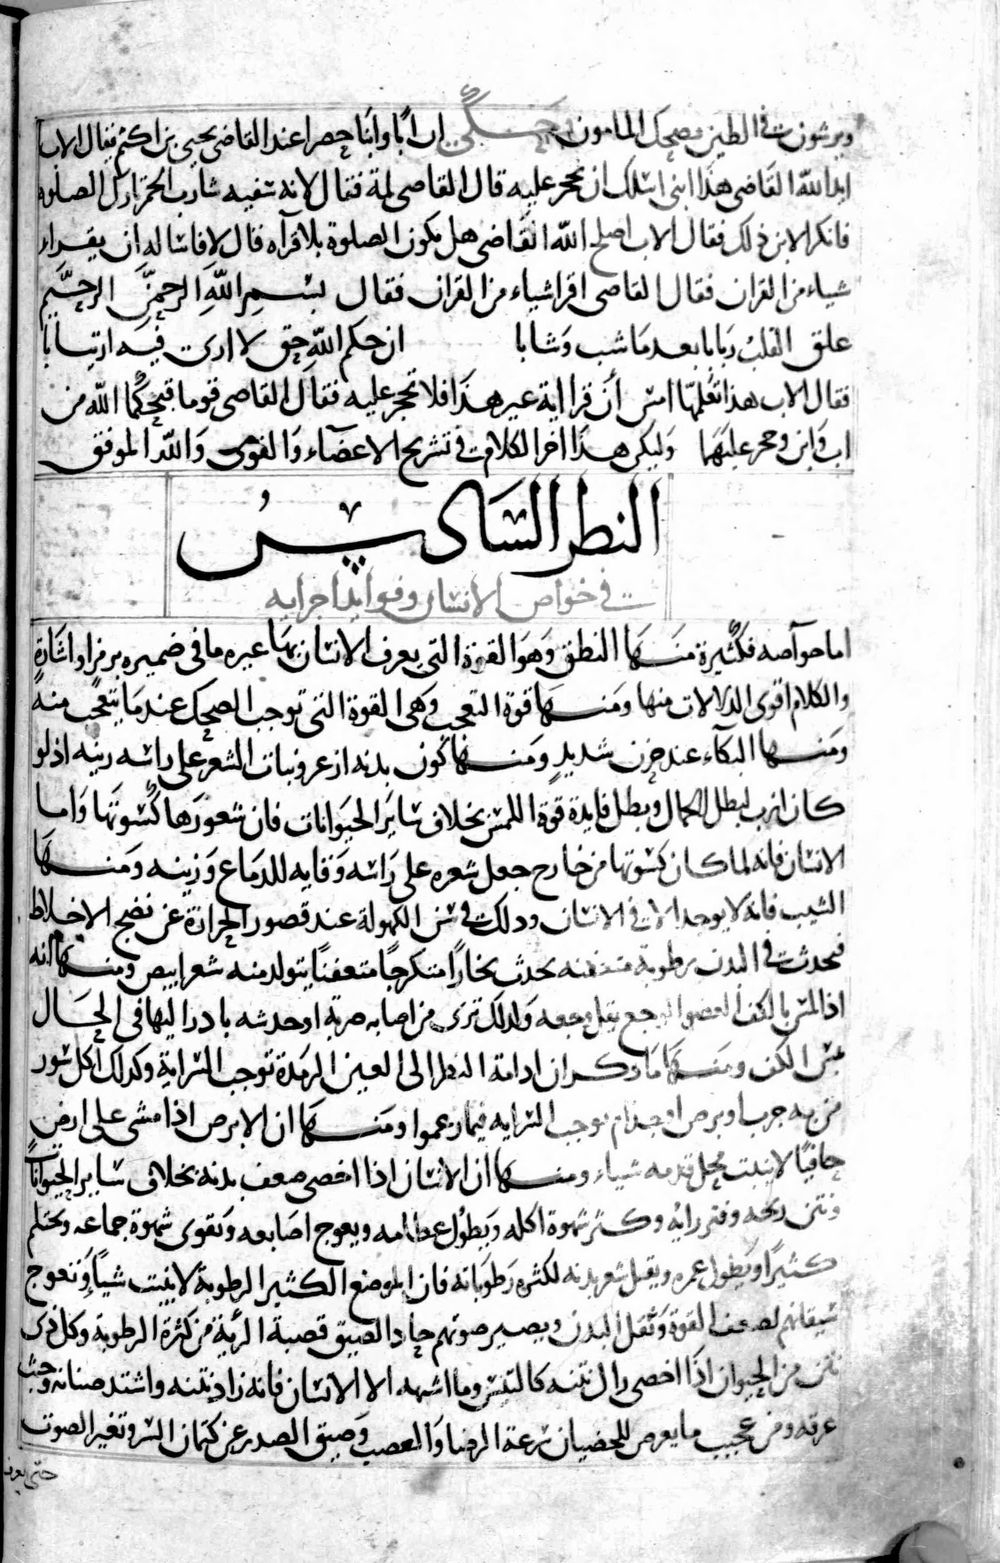 ويرشون في الطين فضحك المامون وحكي ان ابا وابنا حضرا عند القاضي يحيى بن اكثم فقال الاب
ايد الله القاضي هذا ابني اسئلك ان تحجر عليه قال القاضي لمة فقال لانه سفيه شارب الخمر تارك الصلوة
فانكر الابن ذلك فقال الاب اصلح الله القاضي هل يكون الصلوة بلا قرآة قال لا فاساله ان يقرا
شياء من القران فقال القاضي اقرا شياء من القران فقال بسم الله الرحمن الرحيم
علق القلب ربابا بعد ما شب وشابا ان حكم الله حق لا ارى فيه ارتيابا
فقال الاب هذا تعلمها امس ان قرا اية غير هذا فلا تحجر عليه فقال القاضي قوما قبحكما الله من
اب وابن وحجر عليهما وليكن هذا اخر الكلام في تشريح الاعضاء والقوى والله الموفق
النظر السادس
في خواص الانسان وفوايد اجزايه
اما خواصه فكثيرة منها النطق وهو القوة التي يعرف الانسان بها غيره ما في ضميره برمز او اشارة
والكلام اقوى الدلالات منها ومنها قوة التعجب وهي القوة التي توجب الضحك عند ما يتعجب منه
ومنها البكآء عند حزن شديد ومنها كون بدنه ازعر ونبات الشعر على راسه زينه اذ لو
كان ازب لبطل الجمال وبطل فايدة قوة اللمس بخلاف ساير الحيوانات فان شعورها كسوتها واما
الانسان فانه لما كان كسوتها من خارج جعل شعره على راسه وقايه للدماغ وزينه ومنها
الشيب فانه لا يوجد الا في الانسان وذلك في سن الكهولة عند قصور الحرارة عن نضج الاخلاط
فحدثت في البدن رطوبة متعفنه يحدث بخارا متكرجا متعفنا يتولد منه شعر ابيض ومنها انه
اذا لمس بالكف العضو الوجع يقل وجعه ولذلك ترى من اصابه ضربة او حدشه بادر اليها في الحال
بمس الكف ومنها ما ذكر ان ادامة النظر الى العين الرمدة توجب السراية وكذلك اكل سور
من به جرب او برص او جذام يوجب السرايه فيما زعموا ومنها ان الابرص اذا مشى على ارض
حافيا لا ينبت محل قدمه شياء ومنها ان الانسان اذا اخصى ضعف بدنه بخلاف ساير الحيوانات
ونتن ريحه وفتر رايه وكثر شهوة اكله ويطول عظامه ويعوج اصابعه وتقوى شهوة جماعه ويحتلم
كثيرا ويطول عمره ويقل شعر بدنه لكثرة رطوباته فان الموضع الكثير الرطوبة لا ينبت شيا وتعوج
سيقانهم لضعف القوة وثقل البدن ويصير صوتهم حادا لضيق قصبة الرئة من كثرة الرطوبة وكل ذي
نتن من الحيوان اذا اخصى زال نتنه كالتيس وما اشبهه الا الانسان فانه زاد نتنه واشتد صنانه وخبث
عرقه ومن عجيب ما يعرض للخصيان سرعة الرضا والغضب وضيق الصدر عن كتمان السر وتغير الصوت
حتى يعرف